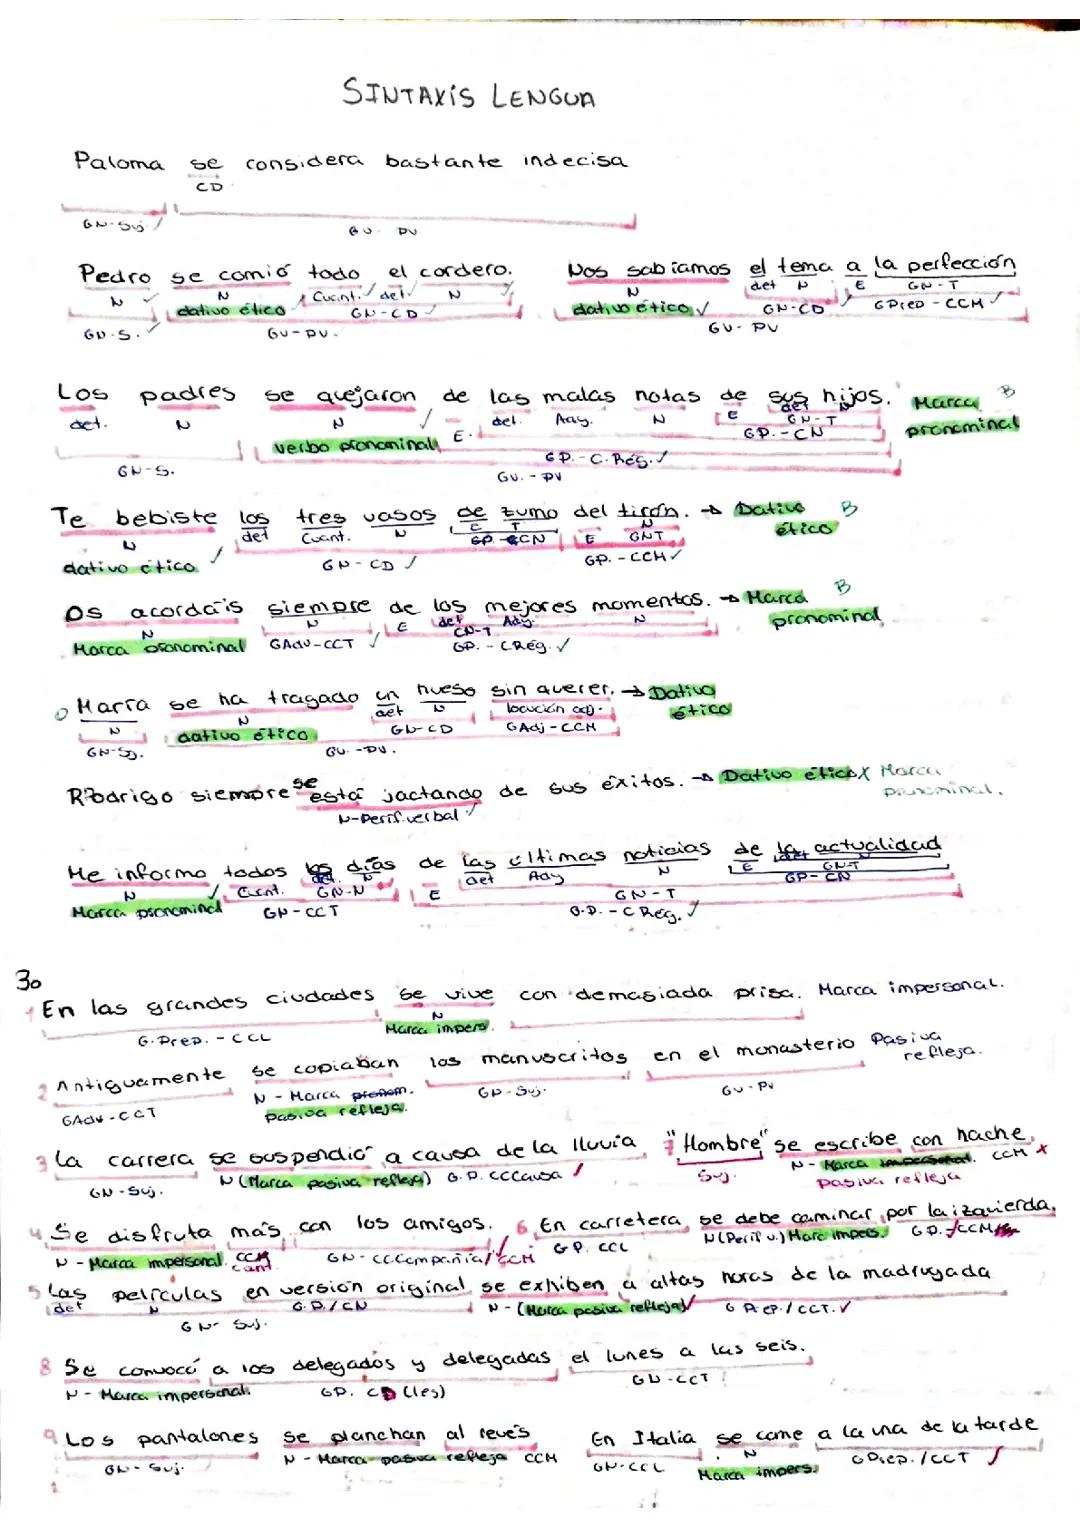 SINTAXIS LENGUA
Paloma se considera bastante indecisa
CD
GN-Suj. GV-PV
Pedro se comió todo el cordero. Nos sabíamos el tema a la perfección
N N Cuant. det. N N det N E GN-T
dativo ético GN-CD dativo ético GN-CD GPrep-CCM
GN-S. GV-PV. GV-PV
Los padres se quejaron de las malas notas de sus hijos. Marca B
det. N N E. det. Ady. N E det N pronominal
verbo pronominal GN-T
GP.-CN
GN-S. GP.-C.Rég.
GV.-PV
Te bebiste los tres vasos de zumo del tirón. → Dativo B
N det Cuant. N E T E GNT ético
dativo ético GN-CD GP.-CN GP.-CCM
Os acordáis siempre de los mejores momentos. → Marca B
N N E det Ady. N pronominal
Marca pronominal GAdv-CCT GN-T
GP.-CRég.
María se ha tragado un hueso sin querer. → Dativo
N N det N locución adj. ético
GN-Sj. dativo ético GN-CD GAdj-CCM
GV.-PV.
Rodrigo siempre se está jactando de sus éxitos. → Dativo ético X Marca
N-Perif.verbal pronominal.
Me informo todos los días de las últimas noticias de la actualidad
N Cuant. det. N E det Ady N E det N
Marca pronominal GN-N GN-T GN-T
GN-CCT G.P.-C Rég. GP-CN
30
1 En las grandes ciudades se vive con demasiada prisa. Marca impersonal.
G.Prep.-CCL N Marca impers.
2 Antiguamente se copiaban los manuscritos en el monasterio Pasiva refleja.
GAdv-CCT N-Marca pronom. GN-Suj. GV-PV
pasiva refleja.
3 La carrera se suspendió a causa de la lluvia 7 "Hombre" se escribe con hache.
GN-Suj. N (Marca pasiva refleja) G.P. CCCausa Suj. N-Marca impersonal. CCM X
pasiva refleja
4 Se disfruta más con los amigos. 6 En carretera, se debe caminar por la izquierda.
N-Marca impersonal. CCM cant. GN-CCCompañía/CCM GP. CCL N(Perif v.) Marc impers. GP./CCM
5 Las películas en versión original se exhiben a altas horas de la madrugada
det N G.P./CN N-(Marca pasiva refleja) G Prep./CCT.
GN-Suj.
8 Se convocó a los delegados y delegadas el lunes a las seis.
N-Marca impersonal. GP. CD (les) GN-CCT
9 Los pantalones se planchan al revés En Italia se come a la una de la tarde
GN-Suj. N-Marca pasiva refleja CCM GN-CCL N GPrep./CCT
Marca impers.